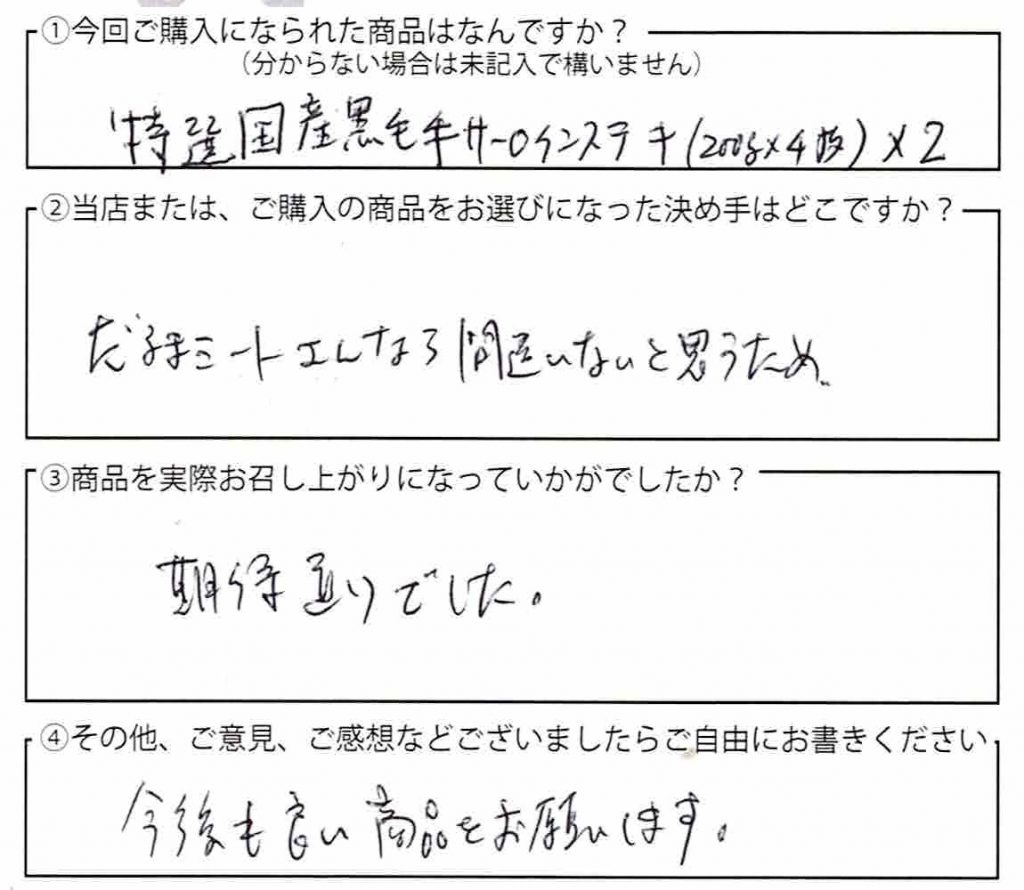 ①今回ご購入になられた商品はなんですか？
（分からない場合は未記入で構いません）
特選国産黒毛牛サーロインステキ(200g×4枚)×2
②当店または、ご購入の商品をお選びになった決め手はどこですか？
だるまミートさんなら間違いないと思うため。
③商品を実際お召し上がりになっていかがでしたか？
期待通りでした。
④その他、ご意見、ご感想などございましたらご自由にお書きください
今後も良い商品をお願いします。